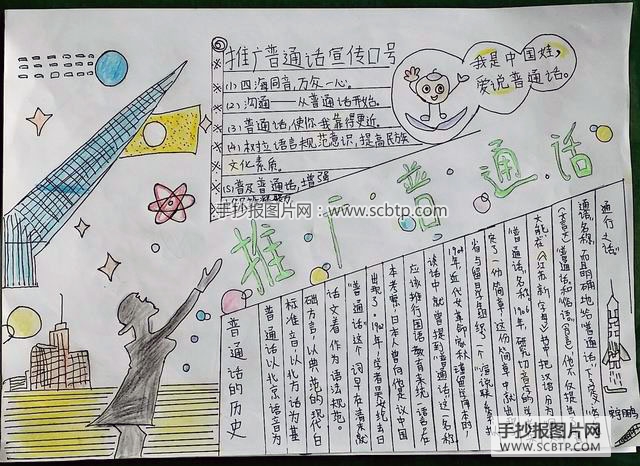 推广普通话宣传口号
(1) 四海同音,万众一心。
(2) 沟通——从普通话开始。
(3) 普通话,使你我靠得更近。
(4) 树立语言规范意识,提高民族
文化素质。
(5) 普及普通话,增强
我是中国娃,
爱说普通话。
手抄报图片网:www.scbtp.com
推广普通话
普通话的历史
普通话以北京语音为
标准音以北方话为基
础方言,以典范的现代白
话文著作为语法规范。
“普通话”这个词早在清末就
出现了。1902年,学者吴汝纶去日
本考察,日本人曾向他建议中国
应该推行国语教育来统一语言。在
谈话中就曾提到“普通话”这一名称。
1904年近代女革命家秋瑾留学日本时,
曾与留日学生组织了一个“演说联系
定了一份简章,这份简章中就出
“普通话”名称。1906年,研究切音字的学
在《江苏新字母》书中把汉语分为
“普通话”和“俗语”,他不仅提出
通话”名称,而且明确地给“普通话”下了定义
通行之话”
手抄报图片网
WWW.SCBTP.COM